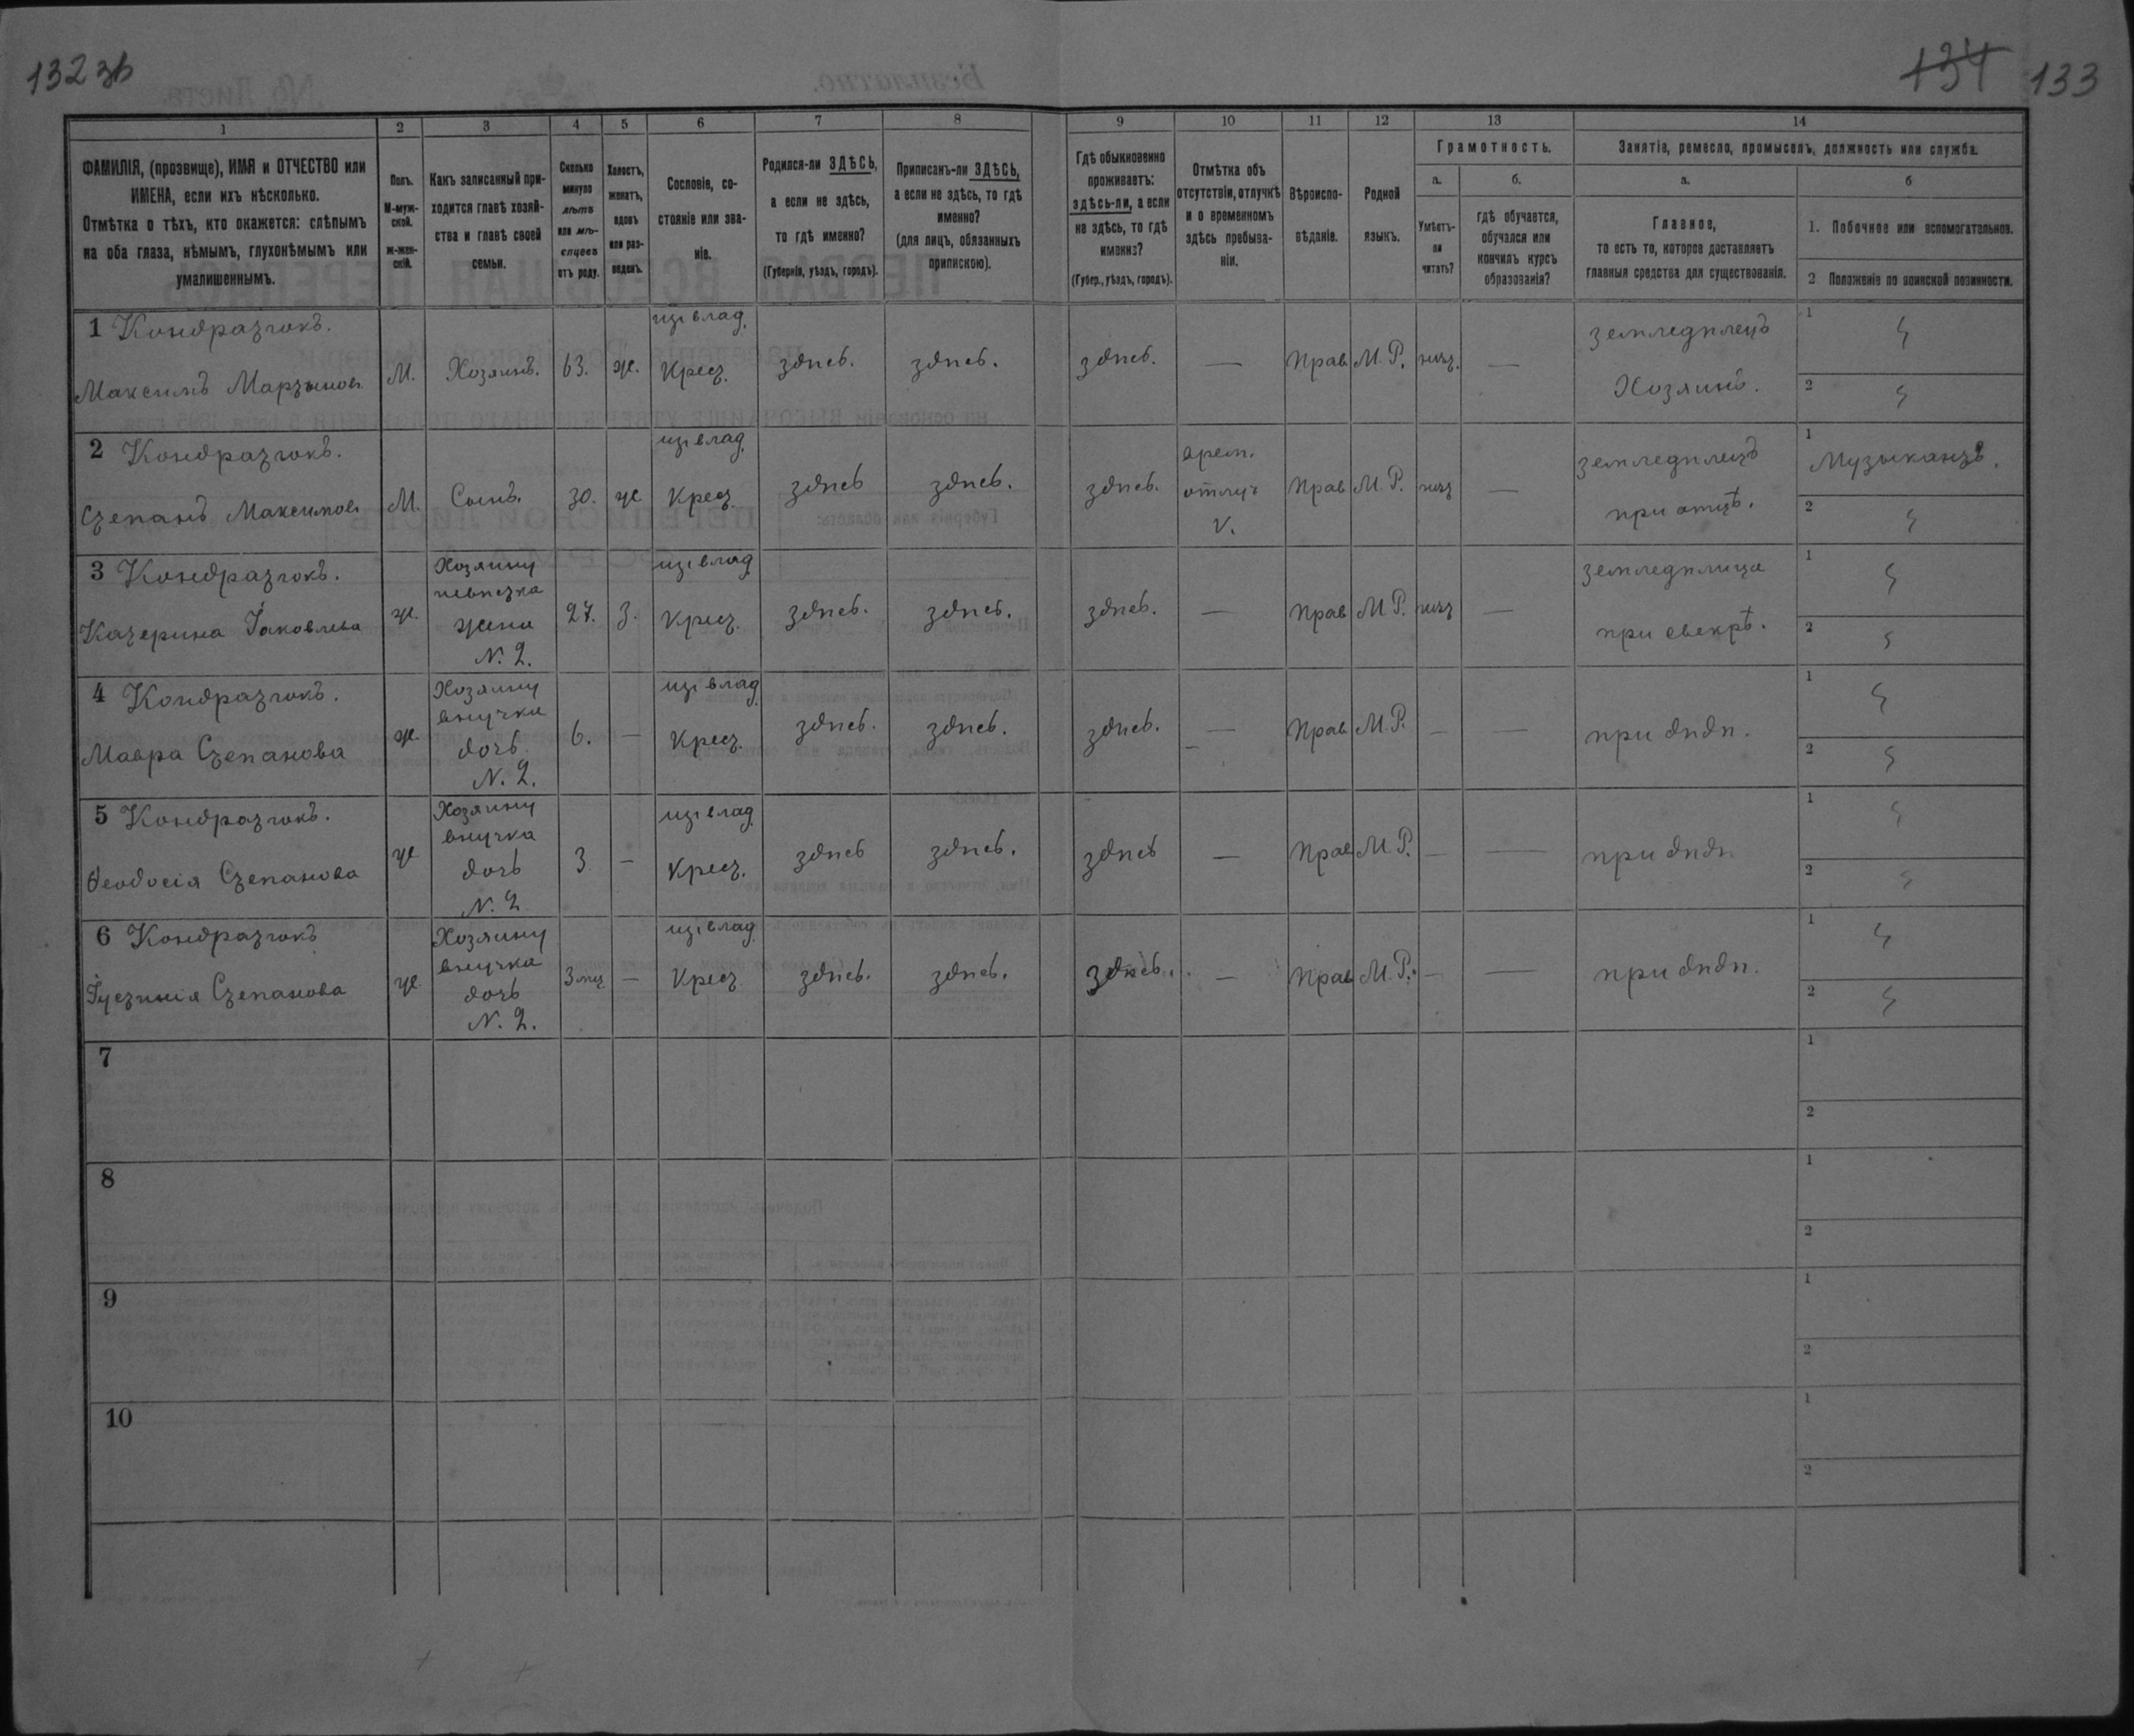 132 зв
134 133
1 2 3 4 5 6 7 8 9 10 11 12 13 14
ФАМИЛІЯ, (прозвище), ИМЯ и ОТЧЕСТВО или
ИМЕНА, если ихъ нѣсколько.
Отмѣтка о тѣхъ, кто окажется: слѣпымъ
на оба глаза, нѣмымъ, глухонѣмымъ или
умалишеннымъ.
Полъ.
М-муж-
ской.
ж-жен-
скій.
Какъ записанный при-
ходится главѣ хозяй-
ства и главѣ своей
семьи.
Сколько
минуло
лѣтъ
или мѣ-
сяцевъ
отъ роду.
Холостъ,
женатъ,
вдовъ
или раз-
веденъ.
Сословіе, со-
стояніе или зва-
ніе.
Родился-ли ЗДѢСЬ,
а если не здѣсь,
то гдѣ именно?
(Губернія, уѣздъ, городъ).
Приписанъ-ли ЗДѢСЬ,
а если не здѣсь, то гдѣ
именно?
(для лицъ, обязанныхъ
припискою).
Гдѣ обыкновенно
проживаетъ:
здѣсь-ли, а если
не здѣсь, то гдѣ
именно?
(Губер., уѣздъ, городъ).
Отмѣтка объ
отсутствіи, отлучкѣ
и о временномъ
здѣсь пребыва-
ніи.
Вѣроиспо-
вѣданіе.
Родной
языкъ.
Грамотность.
а.
Умѣетъ-
ли
читать?
б.
гдѣ обучается,
обучался или
кончилъ курсъ
образованія?
Занятіе, ремесло, промыселъ, должность или служба.
а.
Главное,
то есть то, которое доставляетъ
главныя средства для существованія.
б
1. Побочное или вспомогательное.
2 Положеніе по воинской повинности.
1 Кондратюкъ.
Максимъ Мартынов.
М. Хозяинъ. 63. ж.
Крес.
здѣсь. здѣсь. здѣсь. — Прав М. Р. —
земледѣлецъ
Хозяинъ.
1
2
2 Кондратюкъ.
Степанъ Максимов.
М. Сынъ. 30. ж
Крес.
здѣсь здѣсь. здѣсь.
врем.
отлуч
V.
Прав М. Р. —
земледѣлецъ
при отцѣ.
1 Музыкантъ.
2
3 Кондратюкъ.
Катерина Іаковлева
ж.
Хозяину
невѣстка
жена
N. 2.
27. З.
Крес.
здѣсь. здѣсь. здѣсь. — Прав М. Р. —
земледѣлица
при свекрѣ.
1
2
4 Кондратюкъ.
Мавра Степанова
ж.
Хозяину
внучка
дочь
N. 2.
6. —
Крес.
здѣсь. здѣсь. здѣсь. — Прав М. Р. — —
при дѣдѣ.
1
2
5 Кондратюкъ.
Феодосія Степанова
ж
Хозяину
внучка
дочь
N. 2
3 —
Крес.
здѣсь здѣсь. здѣсь — Прав М. Р. — —
при дѣдѣ.
1
2
6 Кондратюкъ
Іустинія Степанова
ж.
Хозяину
внучка
дочь
N. 2.
3 мц —
Крес.
здѣсь. здѣсь. здѣсь. — Прав М. Р. — —
при дѣдѣ.
1
2
7
1
2
8
1
2
9
1
2
10
1
2